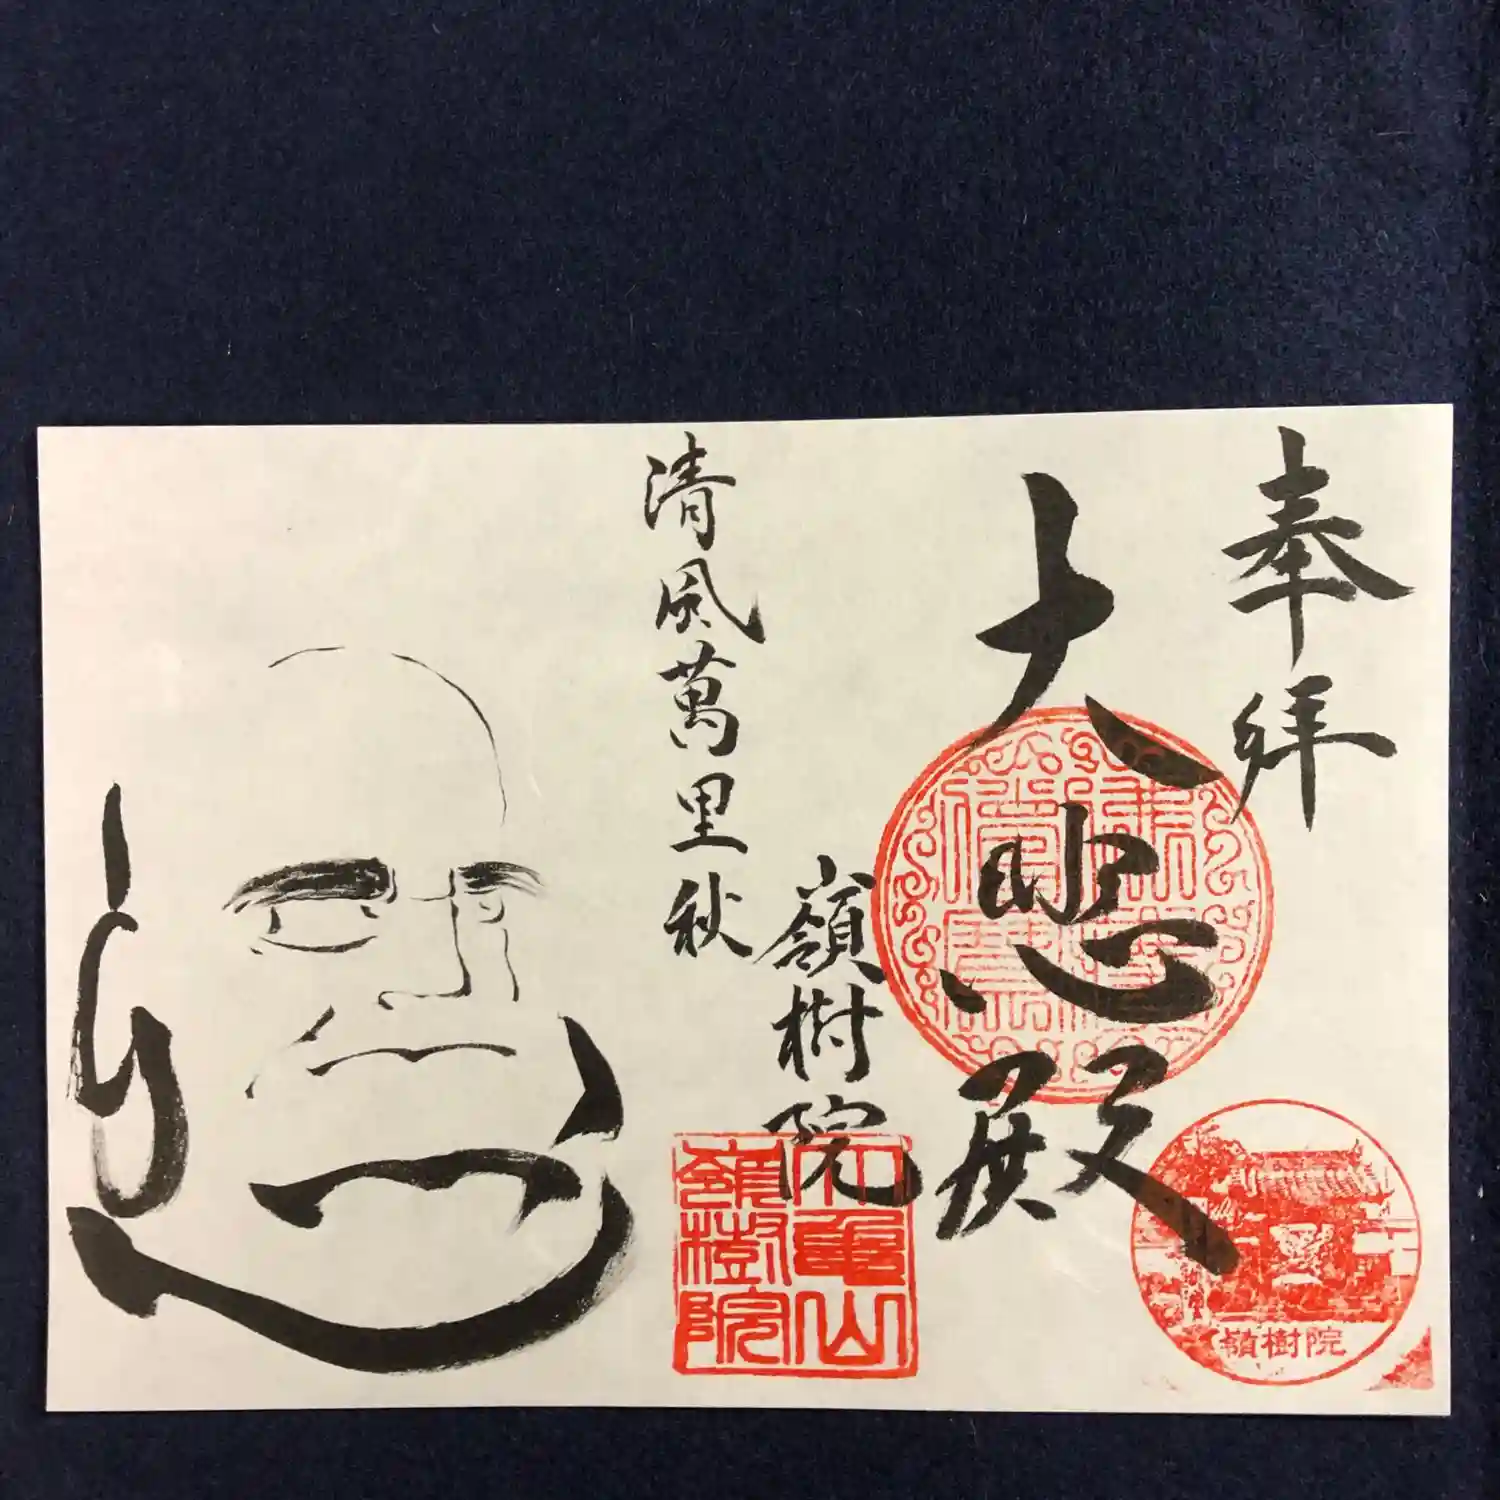 奉拜
大悲殿
嶺樹院
清風萬里秋
嶺樹院
嶺樹院